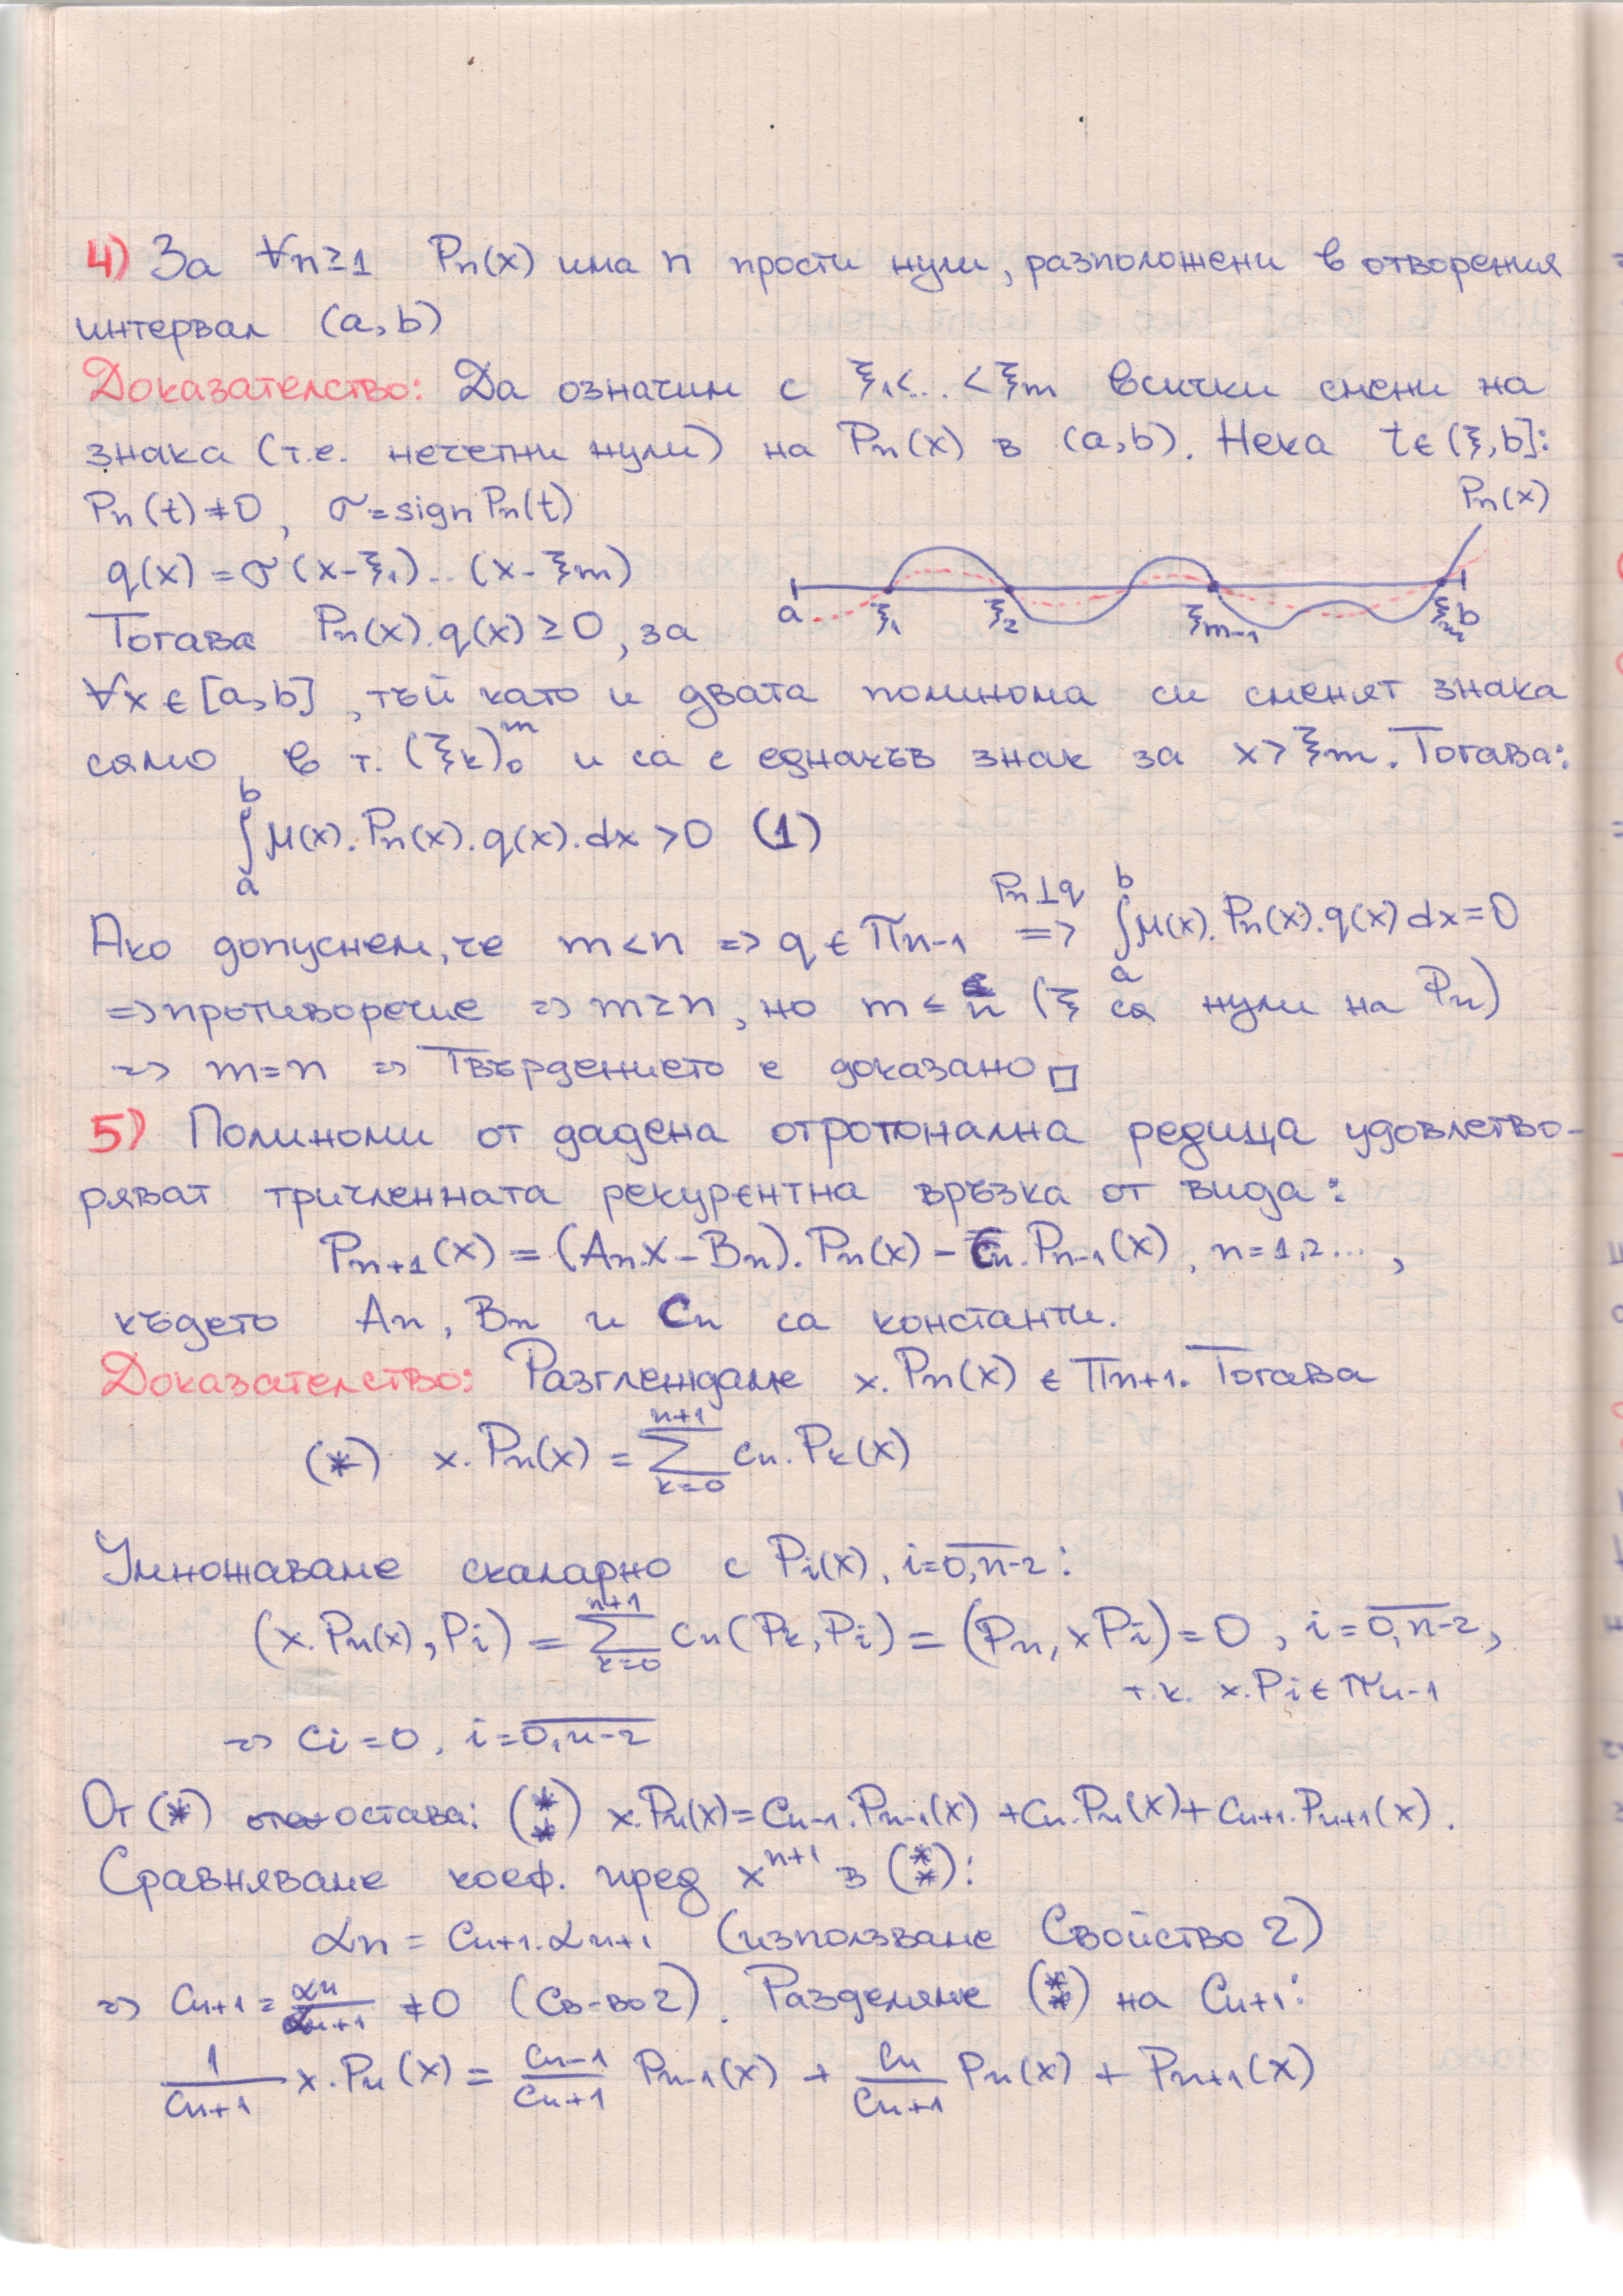 4) За ∀n≥1 Pn(x) има n прости нули, разположени в отворения
интервал (a,b)
Доказателство: Да означим с ξ1<...<ξm всички смени на
знака (т.е. нечетни нули) на Pn(x) в (a,b). Нека t∈(ξ,b]:
Pn(t)≠0, σ=sign Pn(t)
Pn(x)
q(x)=σ(x-ξ1)..(x-ξm)
a ξ1 ξ2 ξm-1 ξm b
Тогава Pn(x).q(x)≥0, за
∀x∈[a,b], тъй като и двата полинома си сменят знака
само в т. (ξk)₀ᵐ и са с еднакъв знак за x>ξm. Тогава:
∫ₐᵇ μ(x).Pn(x).q(x).dx>0 (1)
Ако допуснем, че m<n => q∈Πn-1 =>(Pn⊥q) ∫ₐᵇ μ(x).Pn(x).q(x)dx=0
=> противоречие => m≥n, но m≤n (ξ са нули на Pn)
=> m=n => Твърдението е доказано □
5) Полиноми от дадена отротонална редица удовлетво-
ряват тричленната рекурентна връзка от вида:
Pn+1(x)=(An.x-Bn).Pn(x)-Cn.Pn-1(x), n=1,2...,
където An, Bn и Cn са константи.
Доказателство: Разглеждаме x.Pn(x)∈Πn+1. Тогава
(*) x.Pn(x)=∑ₖ₌₀ⁿ⁺¹ cn.Pk(x)
Умножаваме скаларно с Pi(x), i=0,n-2:
(x.Pn(x),Pi)=∑ₖ₌₀ⁿ⁺¹ cn(Pk,Pi)=(Pn,xPi)=0, i=0,n-2,
т.к. x.Pi∈Πn-1
=> ci=0, i=0,n-2
От (*) остава: (**) x.Pn(x)=cn-1.Pn-1(x)+cn.Pn(x)+cn+1.Pn+1(x).
Сравняваме коеф. пред xⁿ⁺¹ в (**):
αn=cn+1.αn+1 (използваме Свойство 2)
=> cn+1=αn/αn+1≠0 (Св-во2). Разделяме (**) на cn+1:
1/cn+1 x.Pn(x)=cn-1/cn+1 Pn-1(x)+cn/cn+1 Pn(x)+Pn+1(x)